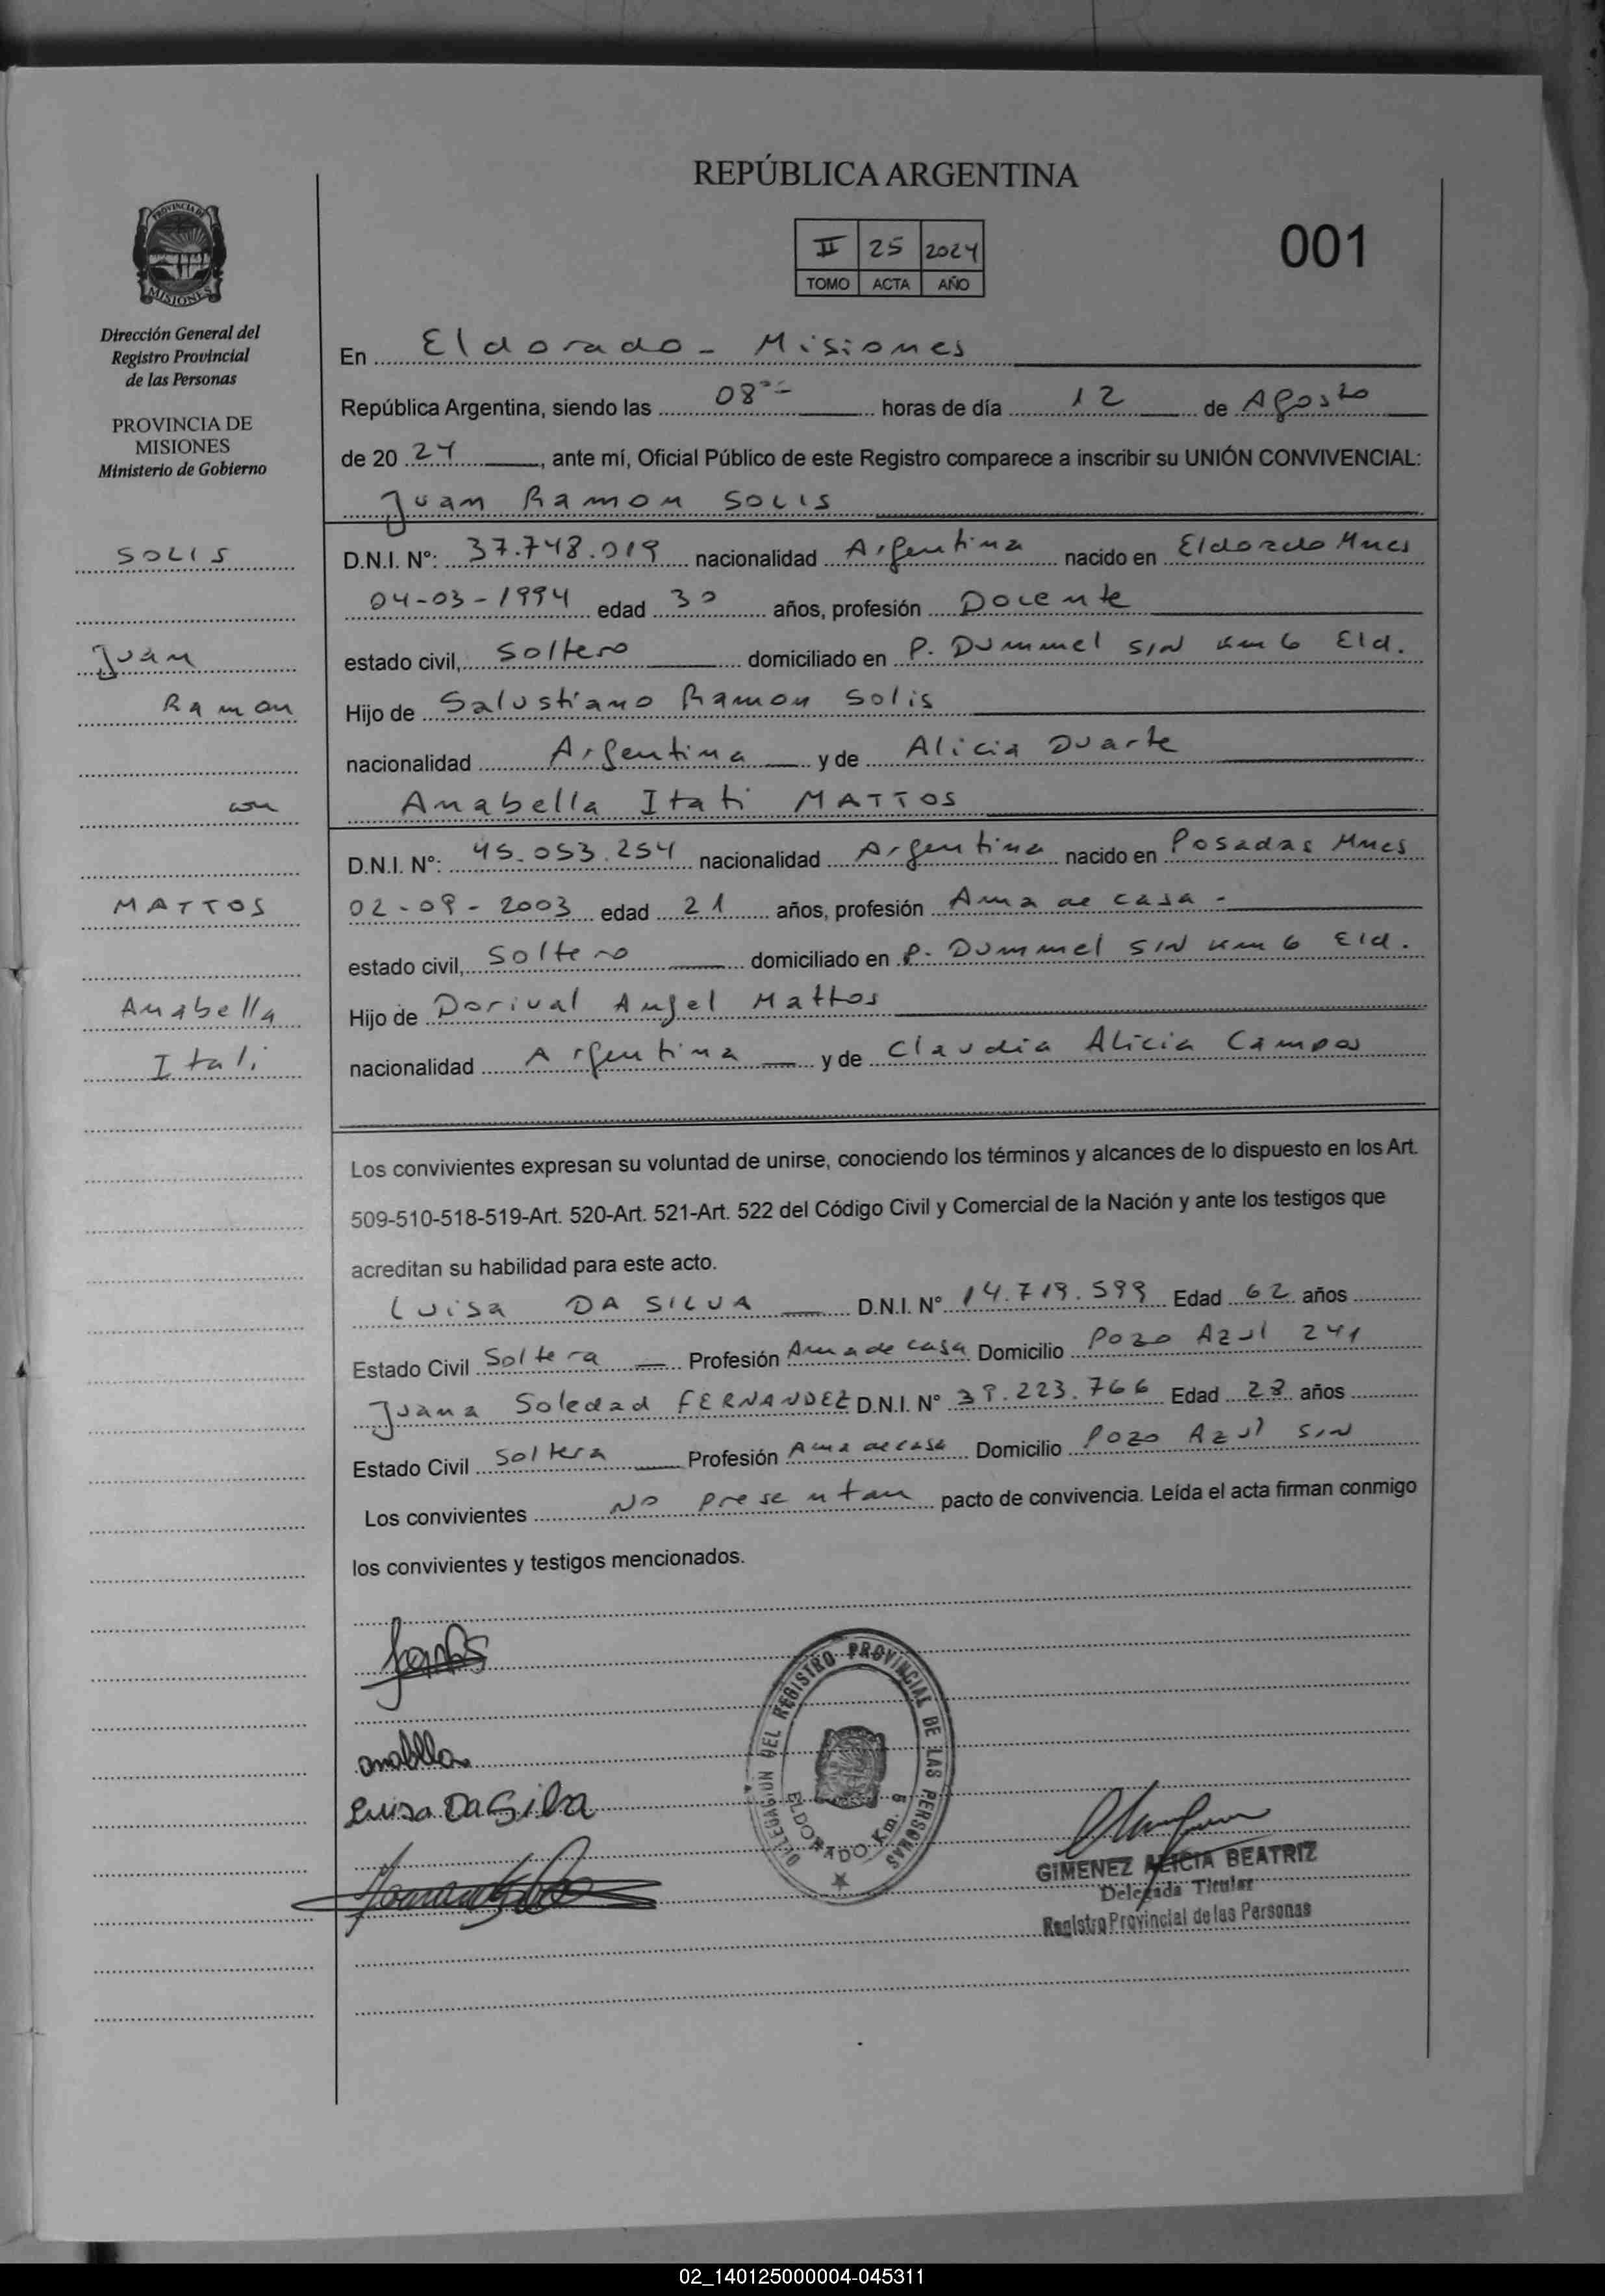 REPÚBLICA ARGENTINA
II 25 2024
TOMO ACTA AÑO
001
PROVINCIA DE
MISIONES
Dirección General del
Registro Provincial
de las Personas
PROVINCIA DE
MISIONES
Ministerio de Gobierno
SOLIS
Juan
Ramon
con
MATTOS
Anabella
Itati
En Eldorado - Misiones
República Argentina, siendo las 08 horas de día 12 de Agosto
de 20 24, ante mí, Oficial Público de este Registro comparece a inscribir su UNIÓN CONVIVENCIAL:
Juan Ramon SOLIS
D.N.I. Nº: 37.748.019 nacionalidad Argentina nacido en Eldorado Mnes
04-03-1994 edad 30 años, profesión Docente
estado civil, Soltero domiciliado en P. Dummel S/N Km 6 Eld.
Hijo de Salustiano Ramon Solis
nacionalidad Argentina y de Alicia Duarte
Anabella Itati MATTOS
D.N.I. Nº: 45.053.254 nacionalidad Argentina nacido en Posadas Mnes
02-09-2003 edad 21 años, profesión Ama de casa -
estado civil, Soltero domiciliado en P. Dummel S/N Km 6 Eld.
Hijo de Dorival Angel Mattos
nacionalidad Argentina y de Claudia Alicia Campos
Los convivientes expresan su voluntad de unirse, conociendo los términos y alcances de lo dispuesto en los Art.
509-510-518-519-Art. 520-Art. 521-Art. 522 del Código Civil y Comercial de la Nación y ante los testigos que
acreditan su habilidad para este acto.
Luisa DA SILVA D.N.I. Nº 14.719.599 Edad 62 años
Estado Civil Soltera Profesión Ama de casa Domicilio Pozo Azul 241
Juana Soledad FERNANDEZ D.N.I. Nº 39.223.766 Edad 28 años
Estado Civil Soltera Profesión Ama de casa Domicilio Pozo Azul S/N
Los convivientes No presentan pacto de convivencia. Leída el acta firman conmigo
los convivientes y testigos mencionados.
Luisa Da Silva
DELEGACION DEL REGISTRO PROVINCIAL DE LAS PERSONAS
ELDORADO Km.
GIMENEZ ALICIA BEATRIZ
Delegada Titular
Registro Provincial de las Personas
02_140125000004-045311